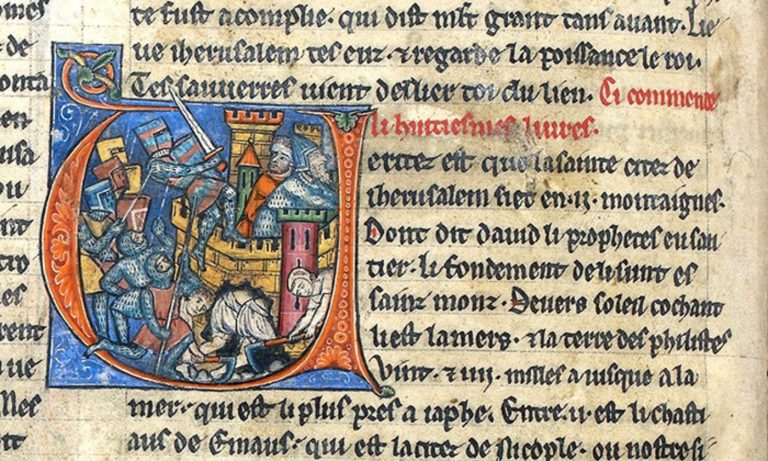 t de
onta
en
usa
ou
tro
es
rent
ue
te fust acomplie. qui dist mlt grant tans auant. Lie
ue iherusalem tes euz. & regarde la poissance le roi.
Tes sauuerres uient deslier toi du lien. Ci commence
li huitiesmes liures.
Ueritez est que la sainte citez de
iherusalem siet en .ii. montaignes.
Dont dit dauid li prophetes en sau
tier. li fondement de li sunt es
sainz monz. Deuers soleil cochant
li est la mers. & la terre des philistes
Vint. & iiii. milles a iusque a la
mer. qui est li plus pres a iaphe. Entre .ii. est li chasti
aus de Emaus. qui est la citez de Nicople. ou nostre si